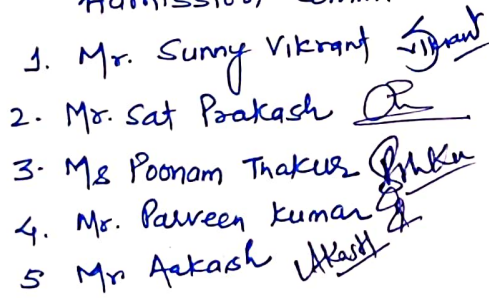 Admission
1. Mr. Sunny Vikrant Vikrant
2. Mr. Sat Prakash
3. Ms Poonam Thakur
4. Mr. Parveen Kumar
5 Mr. Aakash AKash